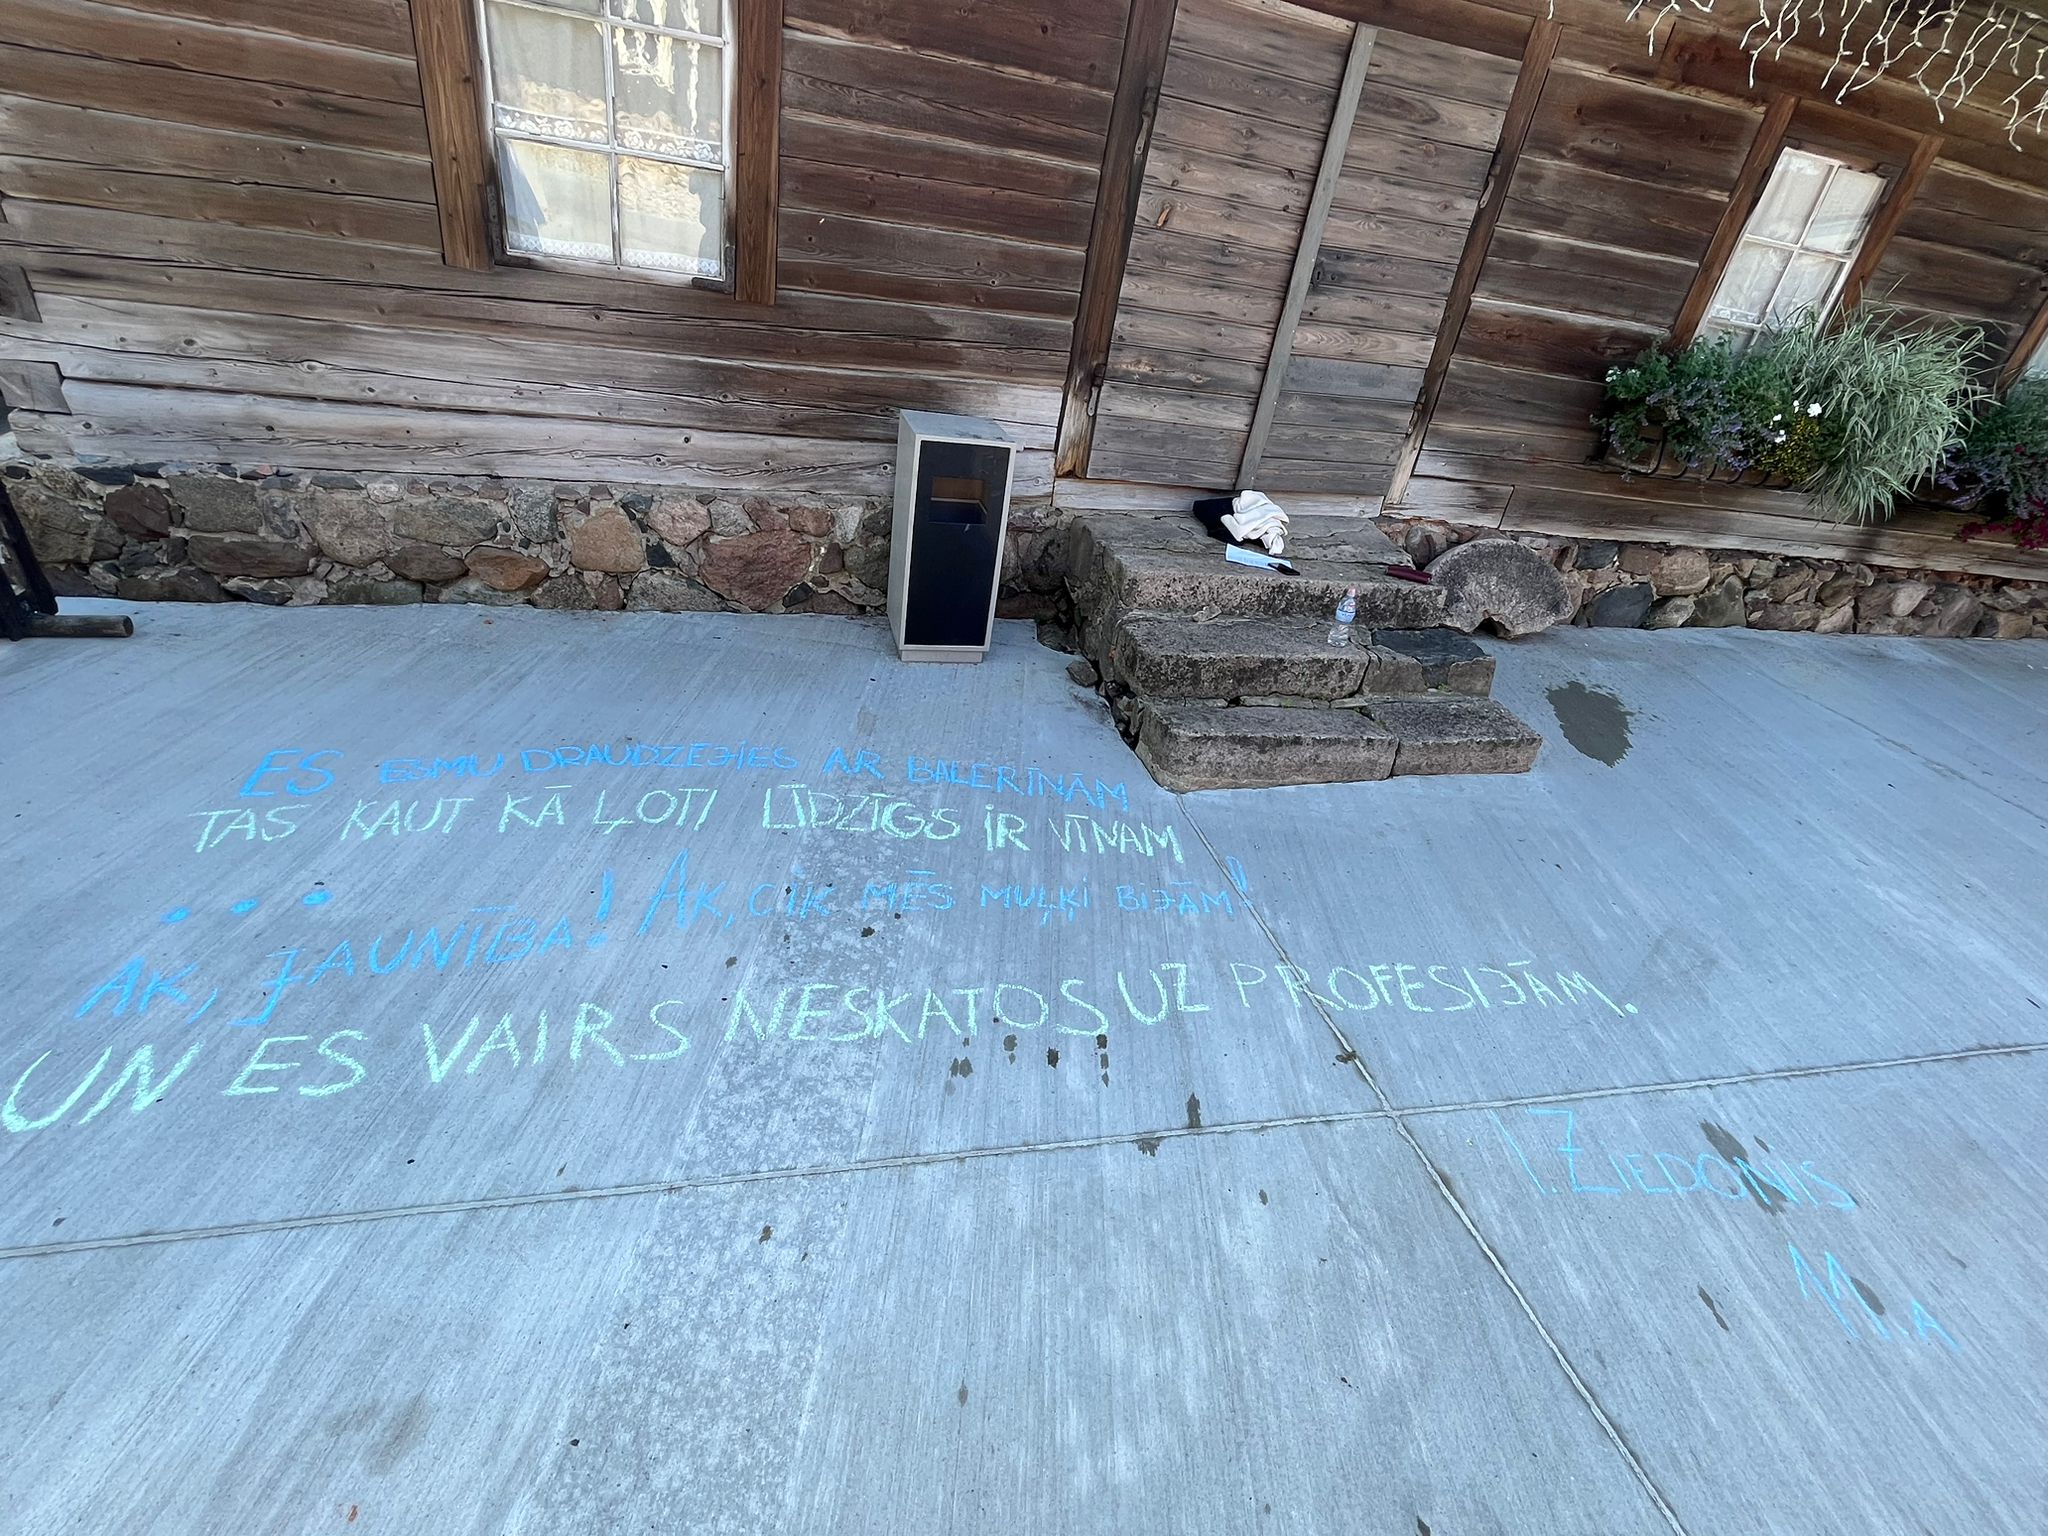 ES ESMU DRAUDZEJIES AR BALERĪNĀM
TAS KAUT KĀ ĻOTI LĪDZĪGS IR VIŅĀM
...
AK, JAUNĪBA! AK, CIK MĒS MUĻĶI BIJĀM!
UN ES VAIRS NESKATOS UZ PROFESIJĀM.
I. ZIEDONIS
M.A